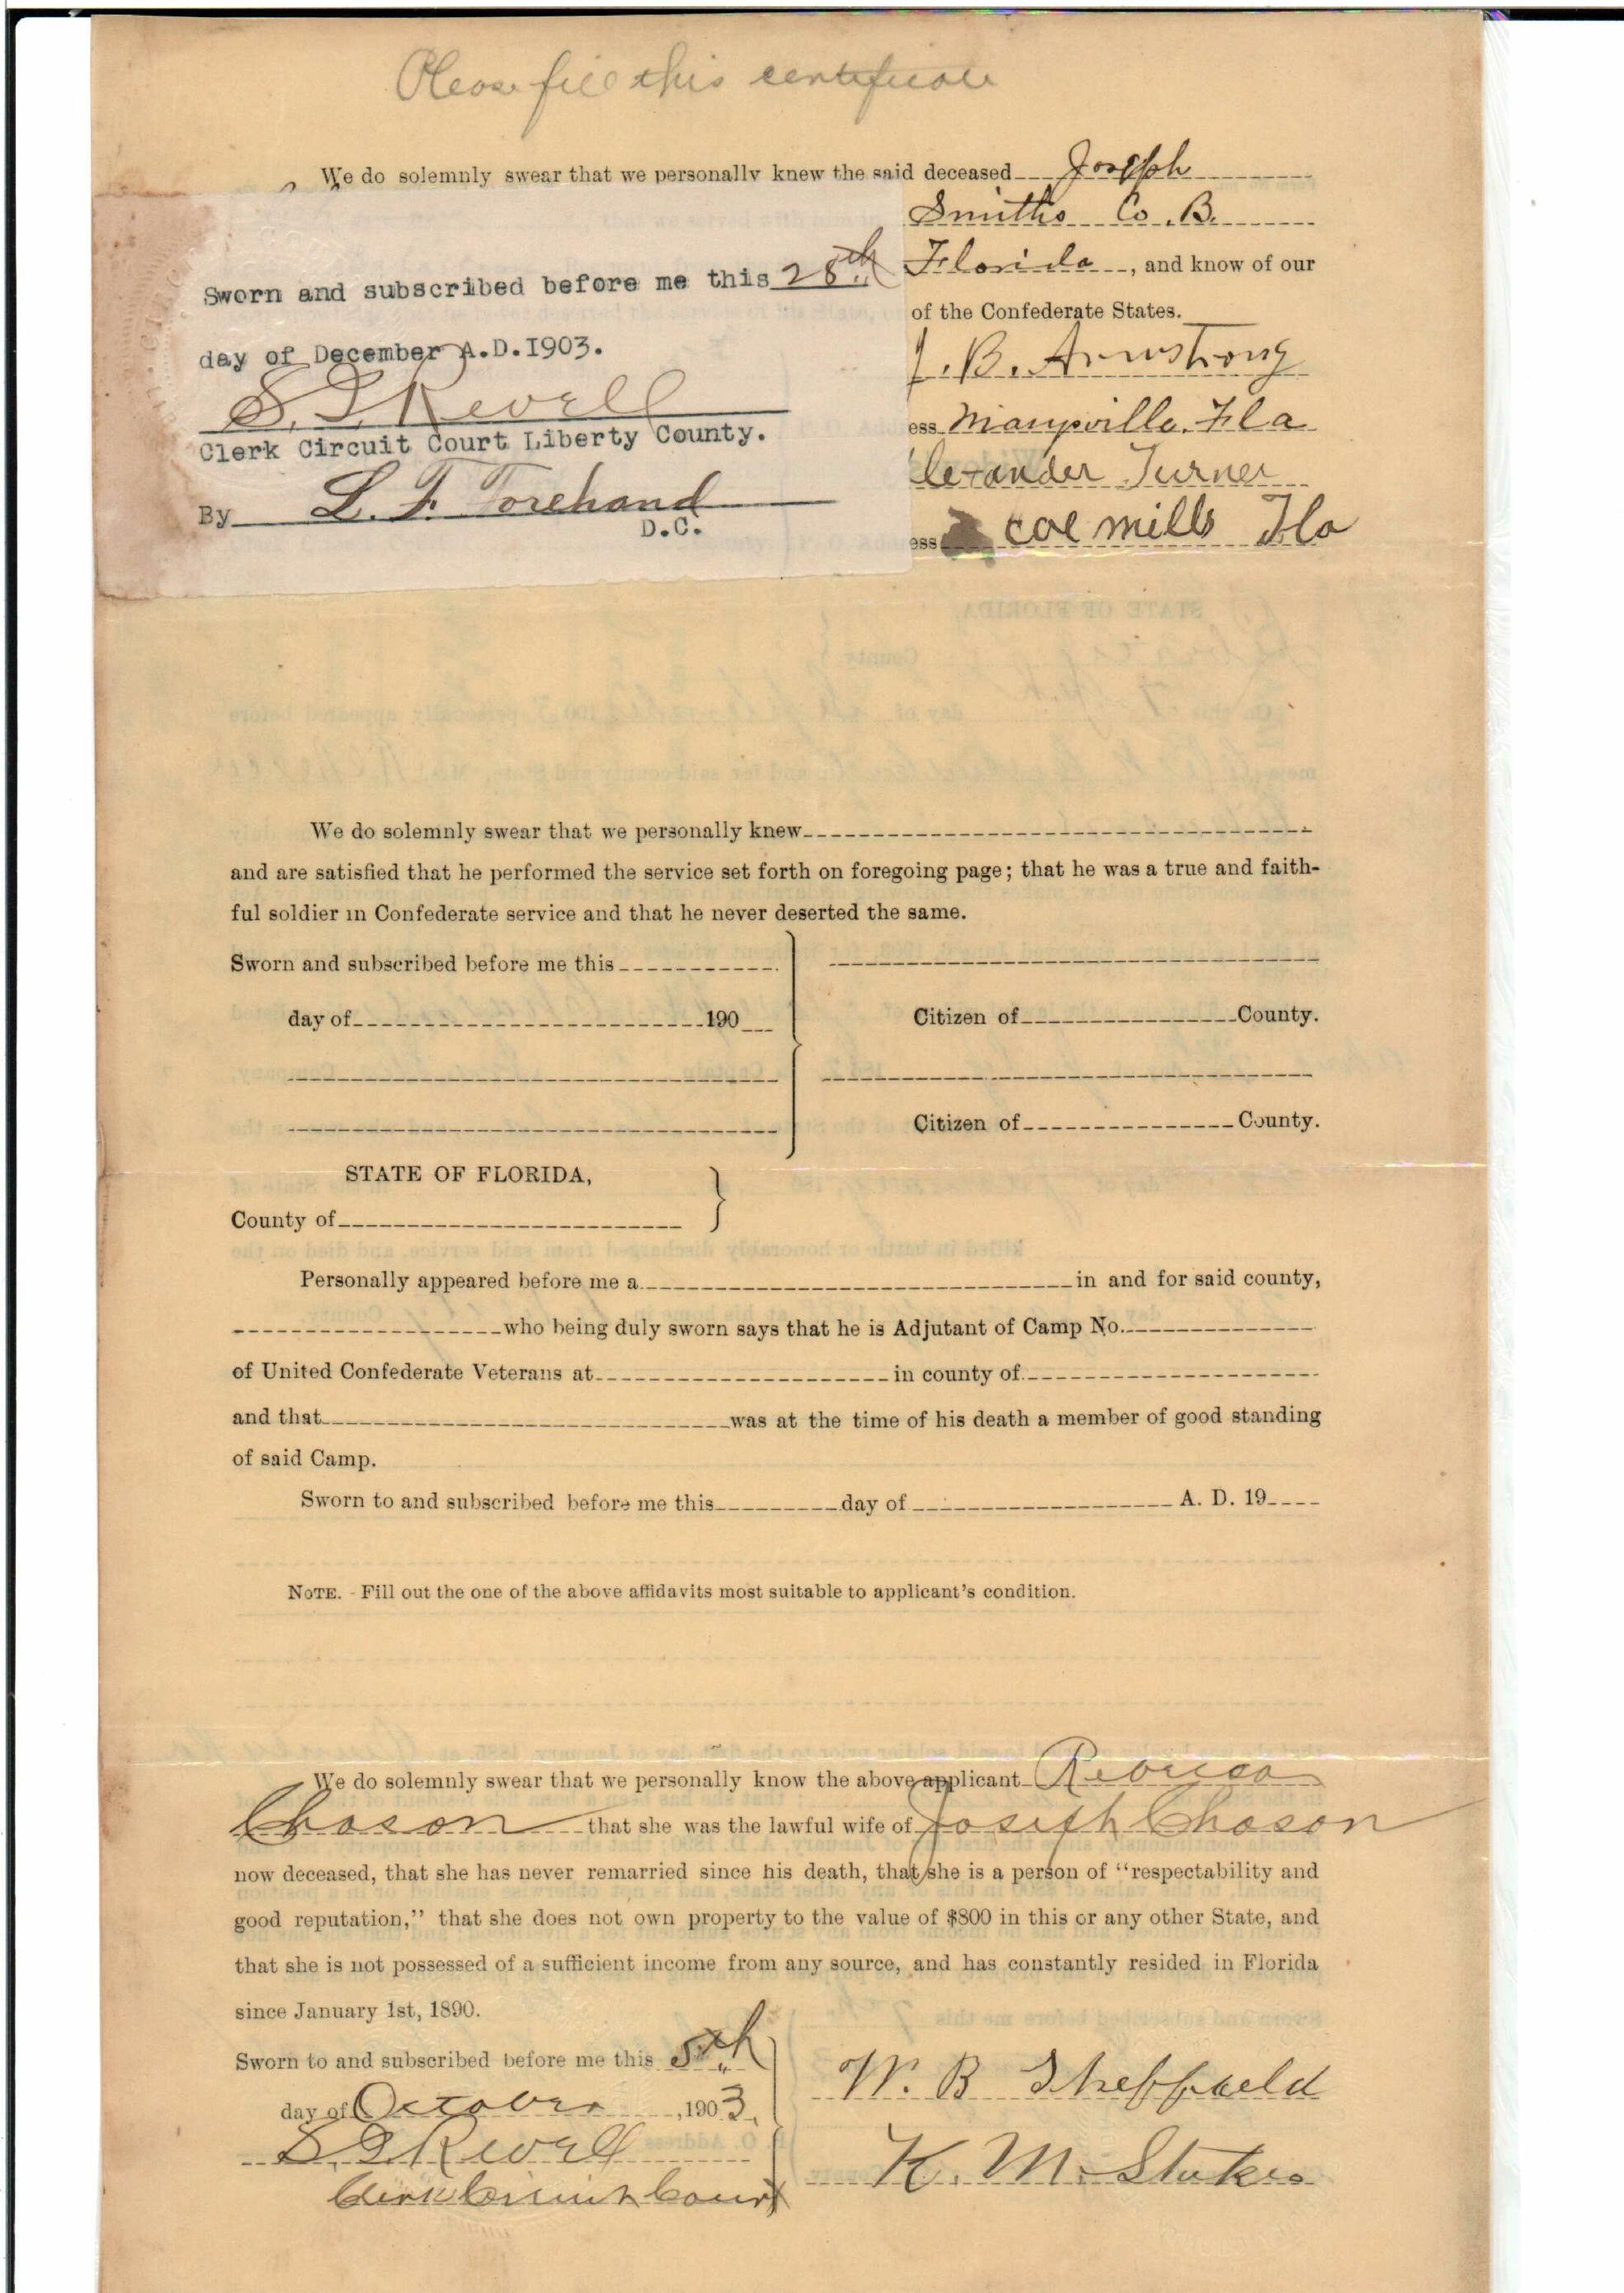 Please fill this certificate
We do solemnly swear that we personally knew the said deceased Joseph
Smiths Co. B.
Florida, and know of our
of the Confederate States.
J. B. Armstrong
ess Marysville, Fla
lexander Turner
ess Coe mills Fla
Sworn and subscribed before me this 28th
day of December A.D.1903.
S. G. Revell
Clerk Circuit Court Liberty County.
By L. F. Forehand
D.C.
We do solemnly swear that we personally knew
and are satisfied that he performed the service set forth on foregoing page; that he was a true and faith-
ful soldier in Confederate service and that he never deserted the same.
Sworn and subscribed before me this
day of 190
Citizen of County.
Citizen of County.
STATE OF FLORIDA,
County of
Personally appeared before me a in and for said county,
who being duly sworn says that he is Adjutant of Camp No.
of United Confederate Veterans at in county of
and that was at the time of his death a member of good standing
of said Camp.
Sworn to and subscribed before me this day of A. D. 19
NOTE. - Fill out the one of the above affidavits most suitable to applicant's condition.
We do solemnly swear that we personally know the above applicant Rebecca
Chason that she was the lawful wife of Joseph Chason
now deceased, that she has never remarried since his death, that she is a person of "respectability and
good reputation," that she does not own property to the value of $800 in this or any other State, and
that she is not possessed of a sufficient income from any source, and has constantly resided in Florida
since January 1st, 1890.
Sworn to and subscribed before me this 5th
day of October, 1903.
S. G. Revell
Clerk Circuit Court
W. B Sheffield
K. M. Stokes